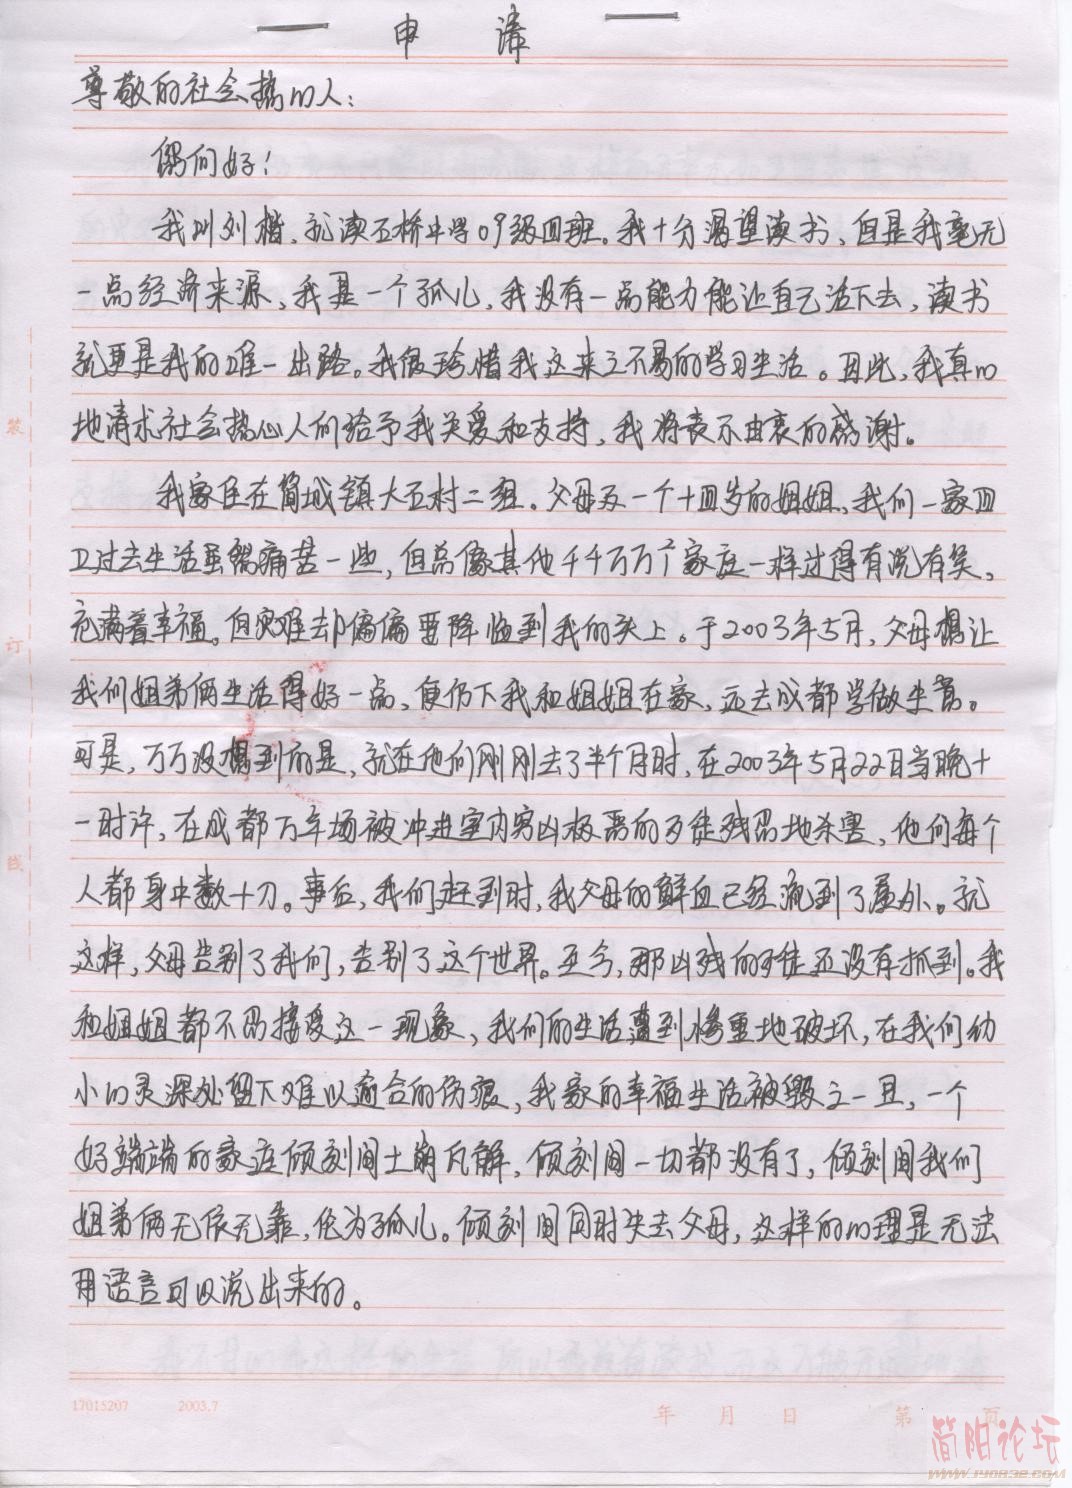 申 请
尊敬的社会热心人：
你们好！
我叫刘楷，就读石桥中学09级四班。我十分渴望读书，但是我毫无
一点经济来源，我是一个孤儿，我没有一点能力能让自己活下去，读书
就更是我的唯一出路。我很珍惜我这来之不易的学习生活。因此，我真心
地请求社会热心人们给予我关爱和支持，我将表示由衷的感谢。
我家住在简城镇大石村二组。父母及一个十四岁的姐姐，我们一家四
口过去生活虽然痛苦一些，但总像其他千千万万个家庭一样过得有说有笑，
充满着幸福。但灾难却偏偏要降临到我的头上。于2003年5月，父母想让
我们姐弟俩生活得好一点，便仍下我和姐姐在家，远去成都学做生意。
可是，万万没想到的是，就在他们刚刚去了半个月时，在2003年5月22日当晚十
一时许，在成都万年场被冲进室内穷凶极恶的歹徒残忍地杀害，他们每个
人都身中数十刀。事后，我们赶到时，我父母的鲜血已经流到了屋外。就
这样，父母告别了我们，告别了这个世界。至今，那凶残的歹徒还没有抓到。我
和姐姐都不忍接受这一现象，我们的生活遭到惨重地破坏，在我们幼
小心灵深处留下难以愈合的伤痕，我家的幸福生活被毁之一旦，一个
好端端的家庭倾刻间土崩瓦解，倾刻间一切都没有了，倾刻间我们
姐弟俩无依无靠，伦为孤儿。倾刻间同时失去父母，这样的心理是无法
用语言可以说出来的。
装
订
线
17015207 2003.7
年 月 日 第 页
简阳论坛